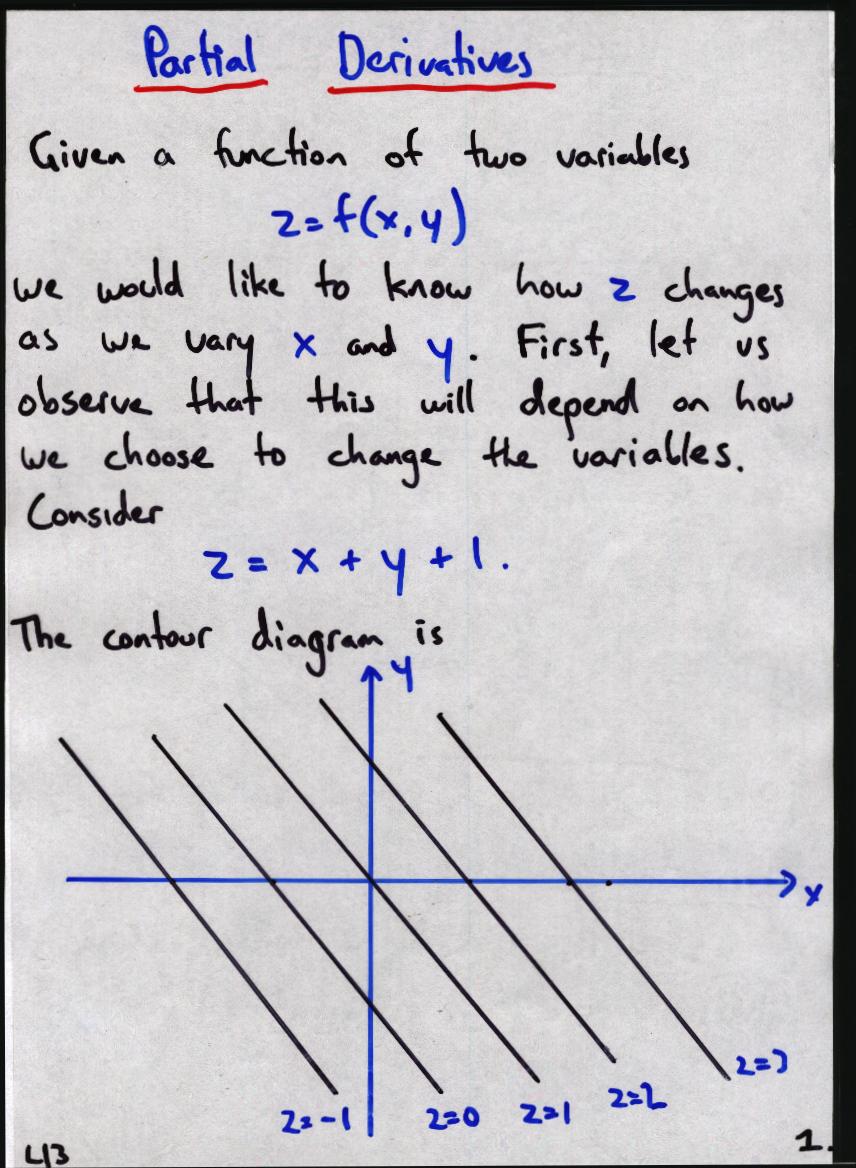 Partial Derivatives
Given a function of two variables
z=f(x,y)
we would like to know how z changes
as we vary x and y. First, let us
observe that this will depend on how
we choose to change the variables.
Consider
z = x + y + 1.
The contour diagram is
y
x
z=3
z=-1 z=0 z=1 z=2
L13 1.